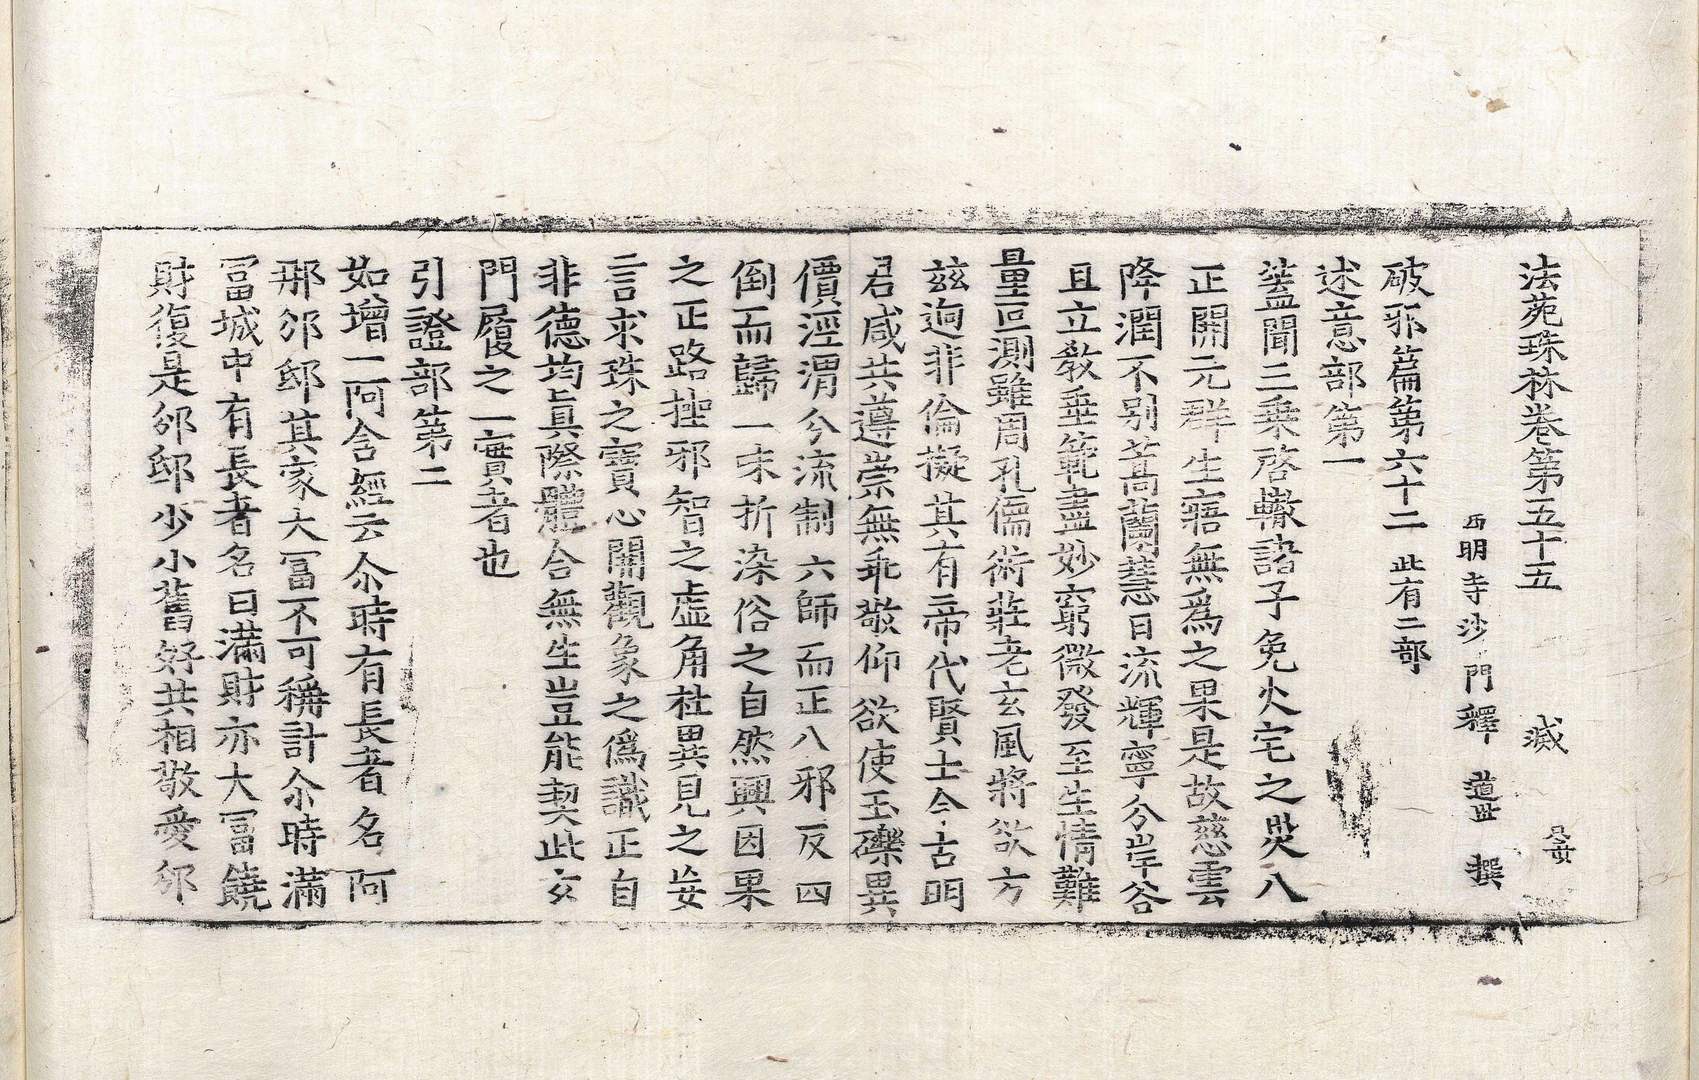 法苑珠林卷第五十五　滅
西明寺沙門釋　道世　撰
破邪篇第六十二　此有二部
述意部第一
蓋聞三乗啓轍諸子免火宅之災八
正開元群生寤無爲之果是故慈雲
降潤不別蒿蘭慧日流輝寧分岸谷
且立教垂範盡妙窮微發至生情難
量叵測雖周孔儒術莊老玄風將欲方
兹逈非倫擬其有帝代賢士今古明
君咸共遵崇無乖敬仰欲使玉礫異
價涇渭分流制六師而正八邪反四
倒而歸一味折染俗之自然興因果
之正路挫邪智之虛角杜異見之妄
言求珠之寶心開觀象之僞識正自
非德均眞際體合無生豈能契此玄
門履之一實者也
引證部第二
如增一阿含經云尒時有長者名阿
那邠邸其家大冨不可稱計尒時滿
冨城中有長者名曰滿財亦大冨饒
財復是邠邸少小舊好共相敬愛邠